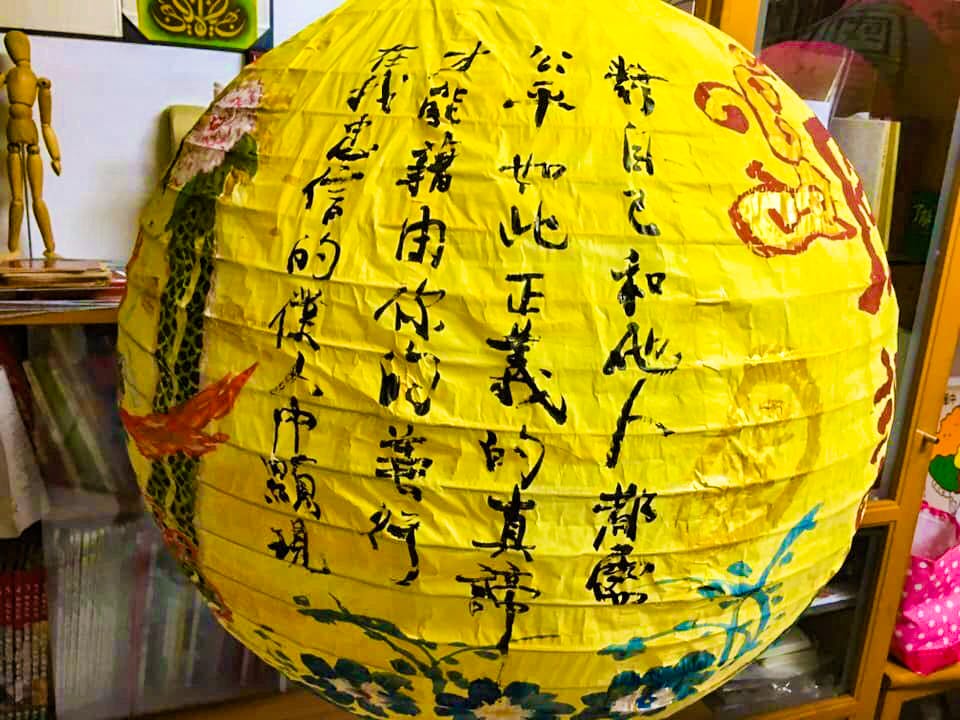 對自己和他人都需
公眾如此正義的真諦
才能藉由你的善行
在我忠信的僕人中顯現